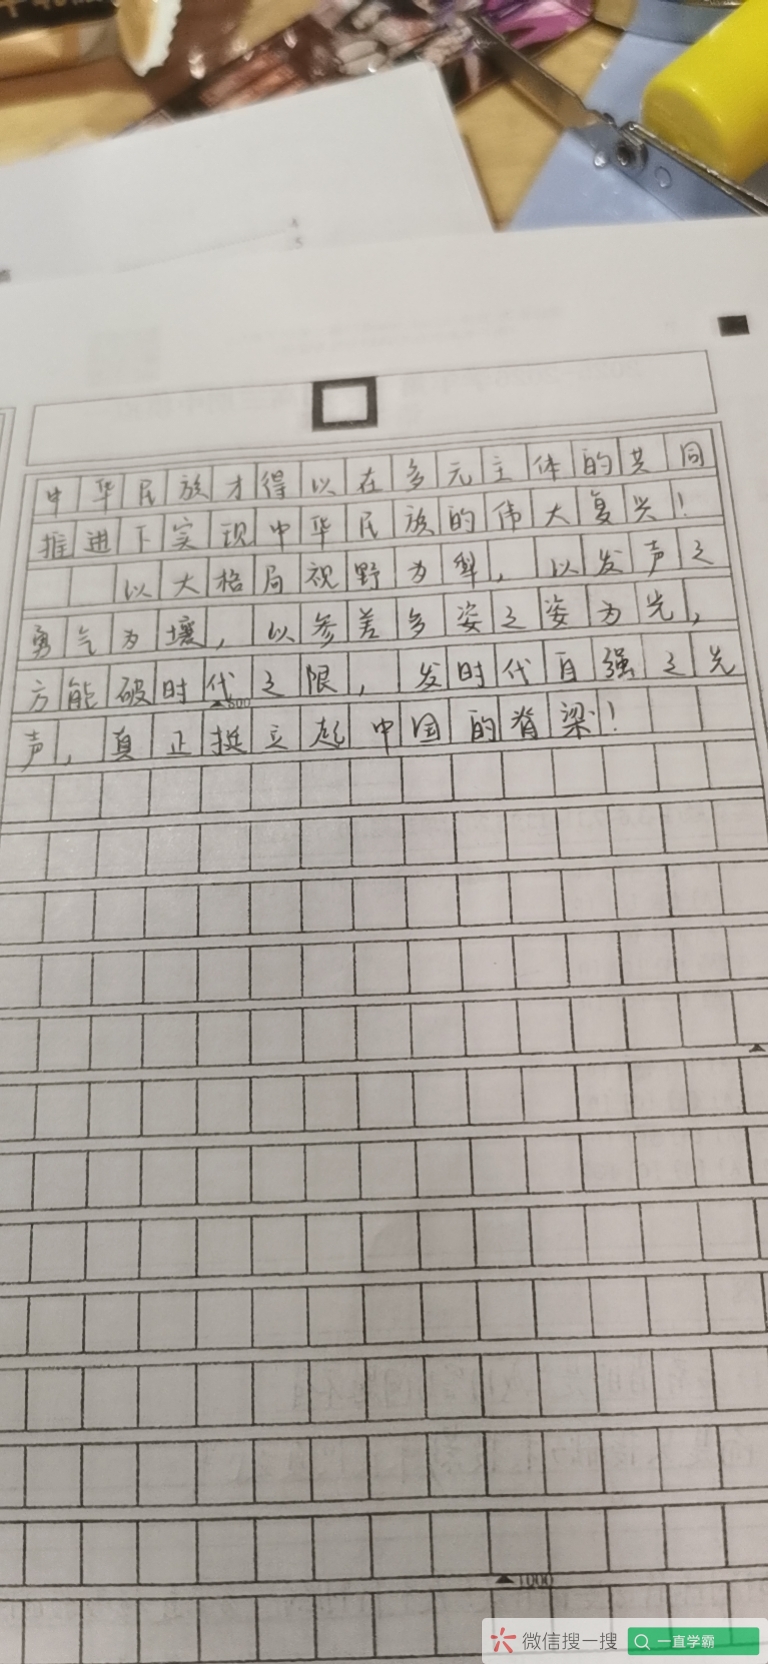 中华民族才得以在多元主体的共同
推进下实现中华民族的伟大复兴！
以大格局视野为犁，以发声之
勇气为壤，以参差多姿之姿为光，
方能破时代之限，发时代自强之先
800
声，真正挺立起中国的脊梁！
1000
微信搜一搜
一直学霸